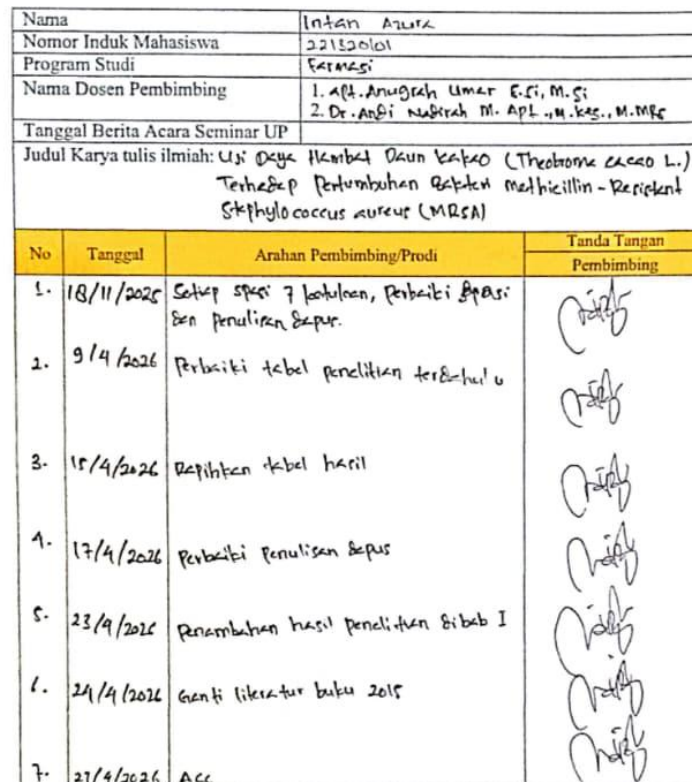 Nama Intan Azura
Nomor Induk Mahasiswa 221320101
Program Studi Farmasi
Nama Dosen Pembimbing 1. apt. Anugrah Umar S.Si, M.Si
2. Dr. Andi Nadirah M. Apt., M.Kes., M.MRS
Tanggal Berita Acara Seminar UP
Judul Karya tulis ilmiah: Uji Daya Hambat Daun kakao (Theobroma cacao L.)
Terhadap Pertumbuhan Bakteri Methicillin-Resistent
Staphylococcus aureus (MRSA)
No Tanggal Arahan Pembimbing/Prodi Tanda Tangan
Pembimbing
1. 18/11/2025 Setiap spasi 7 , Perbaiki spasi
dan penulisan dapus.
2. 9/4/2026 Perbaiki tabel penelitian terdahulu
3. 15/4/2026 Rapihkan tabel hasil
4. 17/4/2026 Perbaiki Penulisan dapus
5. 23/4/2026 Penambahan hasil penelitian dibab I
6. 24/4/2026 Ganti literatur buku 2015
7. 27/4/2026 Acc